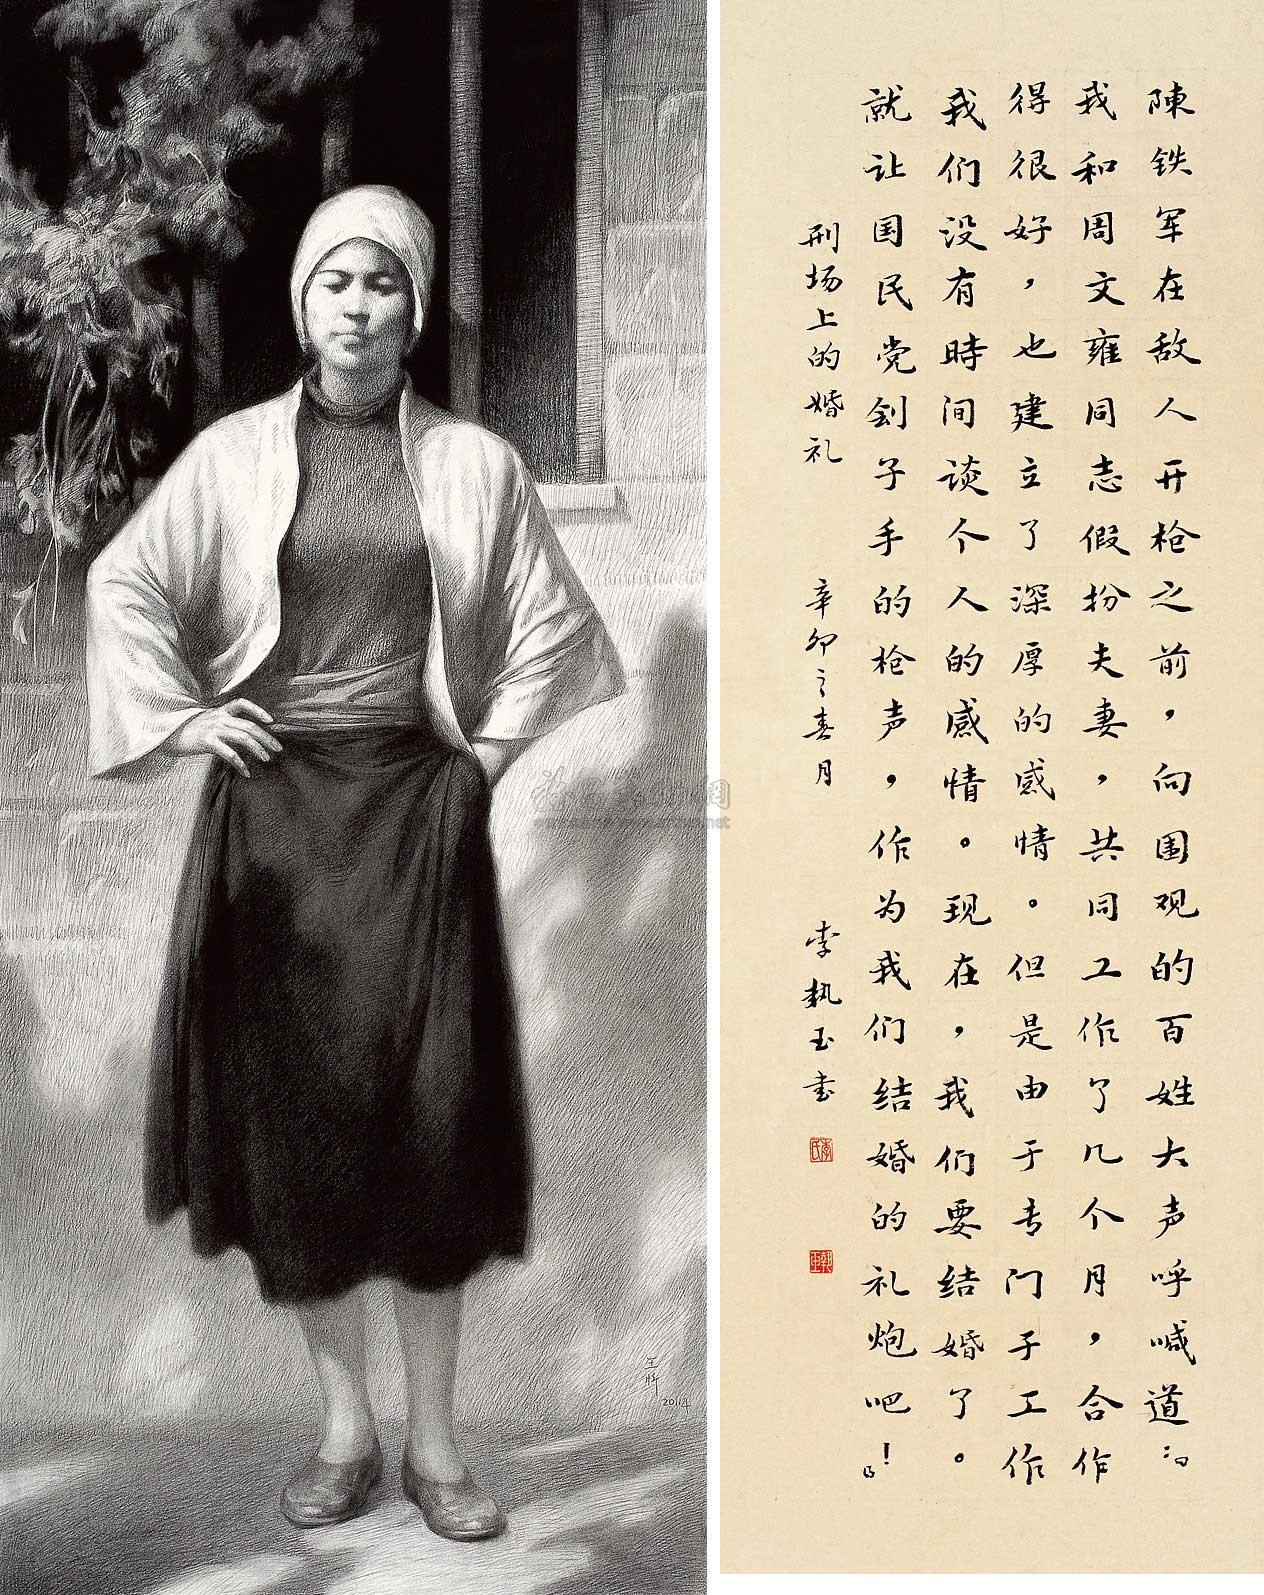 陳铁军在敌人开枪之前，向围观的百姓大声呼喊道：“
我和周文雍同志假扮夫妻，共同工作了几个月，合作
得很好，也建立了深厚的感情。但是由于专门于工作
我们没有時间谈个人的感情。现在，我们要结婚了。
就让国民党刽子手的枪声，作为我们结婚的礼炮吧！”
刑场上的婚礼 辛卯之春月 李執玉书
李氏
2011.4